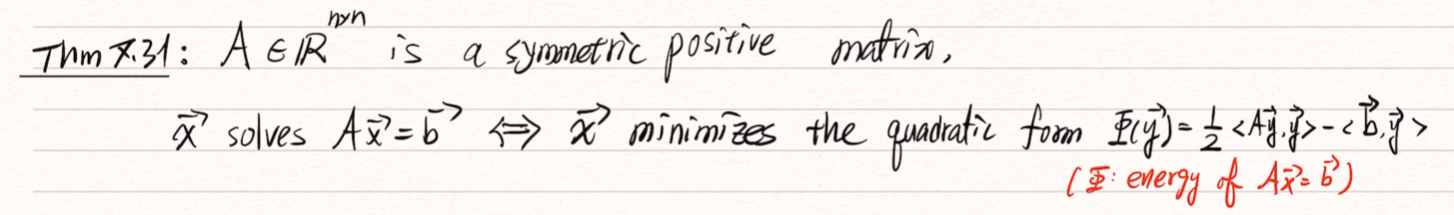 Thm 7.31: A ∈ ℝ^{n×n} is a symmetric positive matrix,
x⃗ solves Ax⃗ = b⃗ ⟺ x⃗ minimizes the quadratic form Φ(y⃗) = 1/2 <Ay⃗, y⃗> - <b⃗, y⃗>
(Φ: energy of Ax⃗ = b⃗)